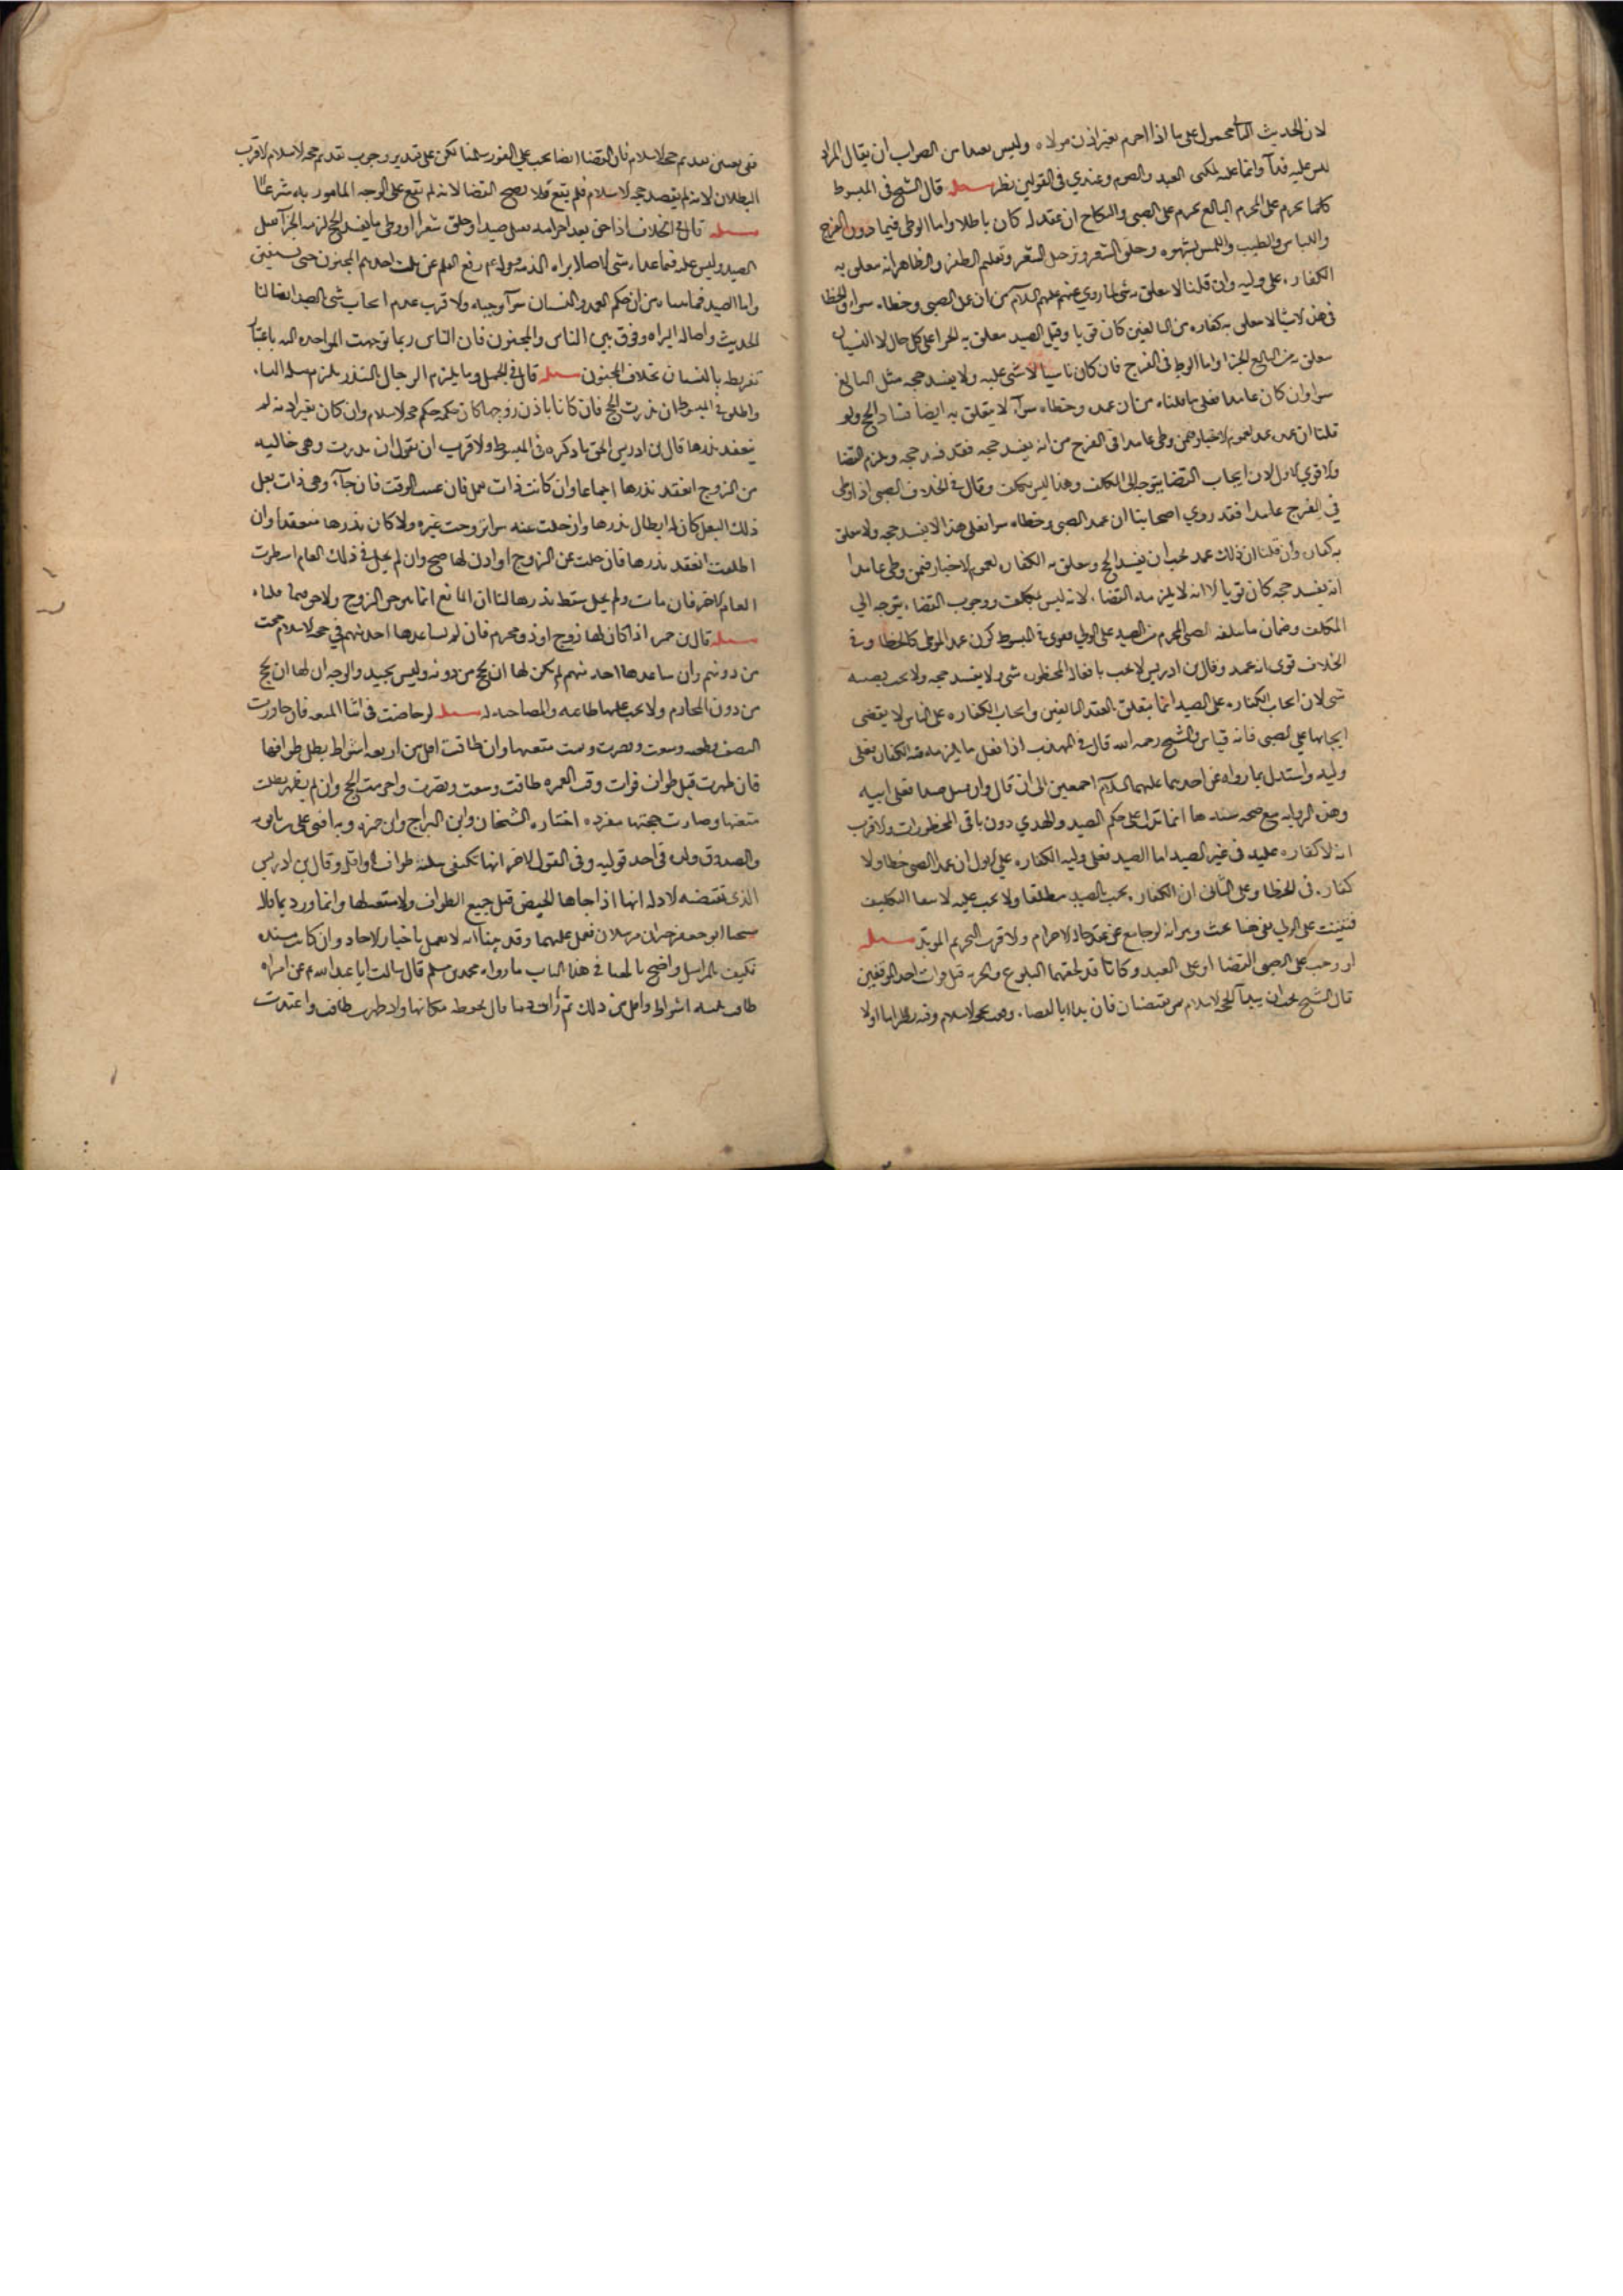 لان الحديث الثاني محمول على ما اذا احرم بغير اذن مولاه وليس بعيدا من الصواب ان يقال المراد
ليس عليه فدآ وانما على المكنى العبد والصوم وعندي في القولين نظر مسئله قال الشيخ في المبسوط
كلما يحرم على المحرم البالغ يحرم على الصبي والنكاح ان عقد له كان باطلا واما الوطى فيما دون الفرج
واللباس والطيب واللمس بشهوه وحلق الشعر وترجيل الشعر وتقليم الظفر والظاهر انه يتعلق به
الكفاره على وليه وان قلنا لا يتعلق به شي لما روي عنهم عليهم السلام من ان عمد الصبي وخطاه سواء والخطا
في هذه الاشيا لا يتعلق به كفاره من البالغين كان قويا وقتل الصيد يتعلق به الجزا على كل حال لان النسيان
يتعلق به من البالغ الجزا واما الوطى في الفرج فان كان ناسيا لا شي عليه ولا يفسد حجه مثل البالغ
سوا وان كان عامدا فعلى ما قلناه من ان عمده وخطاه سوآ لا يتعلق به ايضا فساد الحج ولو
قلنا ان عمده عمد لعموم الاخبار فيمن وطى عامدا في الفرج من انه يفسد حجه فقد فسد حجه ويلزمه القضا
والاقوي الاول لان ايجاب القضا يتوجه الى المكلف وهذا ليس بمكلف وقال في الخلاف الصبي اذا وطى
في الفرج عامدا فقد روي اصحابنا ان عمد الصبي وخطاه سوا فعلى هذا لا يفسد حجه ولا يتعلق
به كفاره وان قلنا ان ذلك عمد يجب ان يفسد الحج ويتعلق به الكفاره لعموم الاخبار فيمن وطى عامدا
انه يفسد حجه كان قويا الا انه لا يلزمه القضاء لانه ليس بمكلف ووجوب القضاء يتوجه الي
المكلف وضمان ما يتلفه الصبي المحرم من الصيد على الولي فقوى في المبسوط كون عمد المولى كالخطا وفي
الخلاف قوى انه عمد وقال بن ادريس لا يجب بافعاله المحظوره شي ولا يفسد حجه ولا يجب بصيده
شي لان ايجاب الكفاره على الصيد انما يتعلق بالعقلا البالغين وايجاب الكفاره على الناس لا يقتضى
ايجابها على الصبي فانه قياس والشيخ رحمه الله قال في المهذب اذا فعل ما يلزمه فيه الكفاره فعلى
وليه واستدل بما رواه عن احدهما عليهما السلام اجمعين الى ان قال وان قتل صيدا فعلى ابيه
وهذه الروايه مع صحه سندها انما تدل على حكم الصيد والهدي دون باقي المحظورات والاقرب
انه لا كفاره عليه في غير الصيد اما الصيد فعلى وليه الكفاره على الاول ان عمد الصبي خطا ولا
كفاره في الخطا وعلى الثاني ان الكفاره يجب بالصيد مطلقا ولا يجب عليه لانتفا التكليف
فتثبت على الولي بقى هنا بحث وهو انه لو جامع عن عقد حال الاحرام والاقرب التحريم الموبد مسئله
لو وجب على الصبي القضا او على العبد وكانا قد لحقهما البلوغ والحريه قبل فوات احد الموقفين
قال الشيخ يجب ان يبدآ بحجه الاسلام ثم يقضيان فان بداا بالقضاء وقعت بحجه الاسلام وفيه نظر اما اولا
ففى تعيين تقديم حجه الاسلام فان القضا ايضا يجب على الفور سلمنا لكن على تقدير وجوب تقديم حجه الاسلام لاقرب
البطلان لانه لم يقصد حجه الاسلام فلم يقع فلا يصح القضا لانه لم يقع على الوجه المامور به شرعًا
مسئله قال في الخلاف اذا جن بعد احرامه فقتل صيدا او حلق شعرا او وطى ما يفسد الحج لزمه الجزآ بقتل
الصيد وليس عليه فيما عداه شي لاصاله براه الذمه وقوله ع رفع القلم عن ثلث احدهم المجنون حتى يستفيق
واما الصيد فما بيناه من ان حكم العمد والنسيان سوآ وجبه والاقرب عدم ايجاب شي الصيد ايضا لنا
الحديث واصاله البراه وفرق بين الناس والمجنون فان الناس ربما توجهت المواخذه اليه باعتبار
تفريطه بالنسيان بخلاف المجنون مسئله قال في الجمل وما يلزم الرجال بالنذر يلزم مثله النساء
واطلق في المبسوط ان نذرت الحج فان كانا باذن زوجها كان حكمه حكم حجه الاسلام وان كان بغير اذنه لم
ينعقد نذرها قال بن ادريس الحق ما ذكره في المبسوط والاقرب ان نقول ان نذرت وهى خاليه
من الزوج انعقد نذرها اجماعا وان كانت ذات بعل فان عينت الوقت فان جآء وهى ذات بعل
ذلك البعل كان له ابطال نذرها وان خلت عنه سوا تزوجت غيره ولا كان نذرها منعقدا وان
اطلقت انعقد نذرها فان خلت عن الزوج او اذن لها صح وان لم يخل في ذلك العام انتظرت
العام الاخر فان مات ولم يخل سقط نذرها لنا ان المانع انما هو حق الزوج ولا حق فيما قلناه
مسئله قال بن حمزه اذا كان لها زوج او ذو محرم فان لم يساعدها احد منهم في حجه الاسلام حجت
من دونهم وان ساعدها احد منهم لم يكن لها ان يحج من دونه وليس بجيد والوجه ان لها ان يحج
من دون المحارم ولا يجب عليها طاعه والمصاحبه له مسئله لو حاضت في اثنا المتعه فان جاوزت
النصف قطعه وسعت وقصرت وتمت متعتها وان طافت اقل من اربعه اشواط بطل طوافها
فان طهرت قبل طواف فوات وقت العمره طافت وسعت وقصرت واحرمت الحج وان لم يطهر بطلت
متعتها وصارت حجتها مفرده اختاره الشيخان وابن البراج وابن حمزه وبه افتى على بن بابويه
والصدوق ولده في احد قوليه وفى القول الاخر انها تكتفى بثلثه طواف الاوائل وقال بن ادريس
الذي تقتضيه الادله انها اذا جاها الحيض قبل جميع الطواف ولا متعه لها وانما ورد بما قالا
شيخنا ابو جعفر خبران مرسلان فعمل عليهما وقد بينا انه لا نعمل باخبار الاحاد وان كانت مسنده
فكيف بالمراسيل واضح بالهنا في هذا الباب ما رواه محمد بن مسلم قال سالت ابا عبد الله ع عن امراه
طافت ثلثه اشواط واقل من ذلك ثم رات دما قال يحفظ مكانها واذا طهرت طافت واعتدت